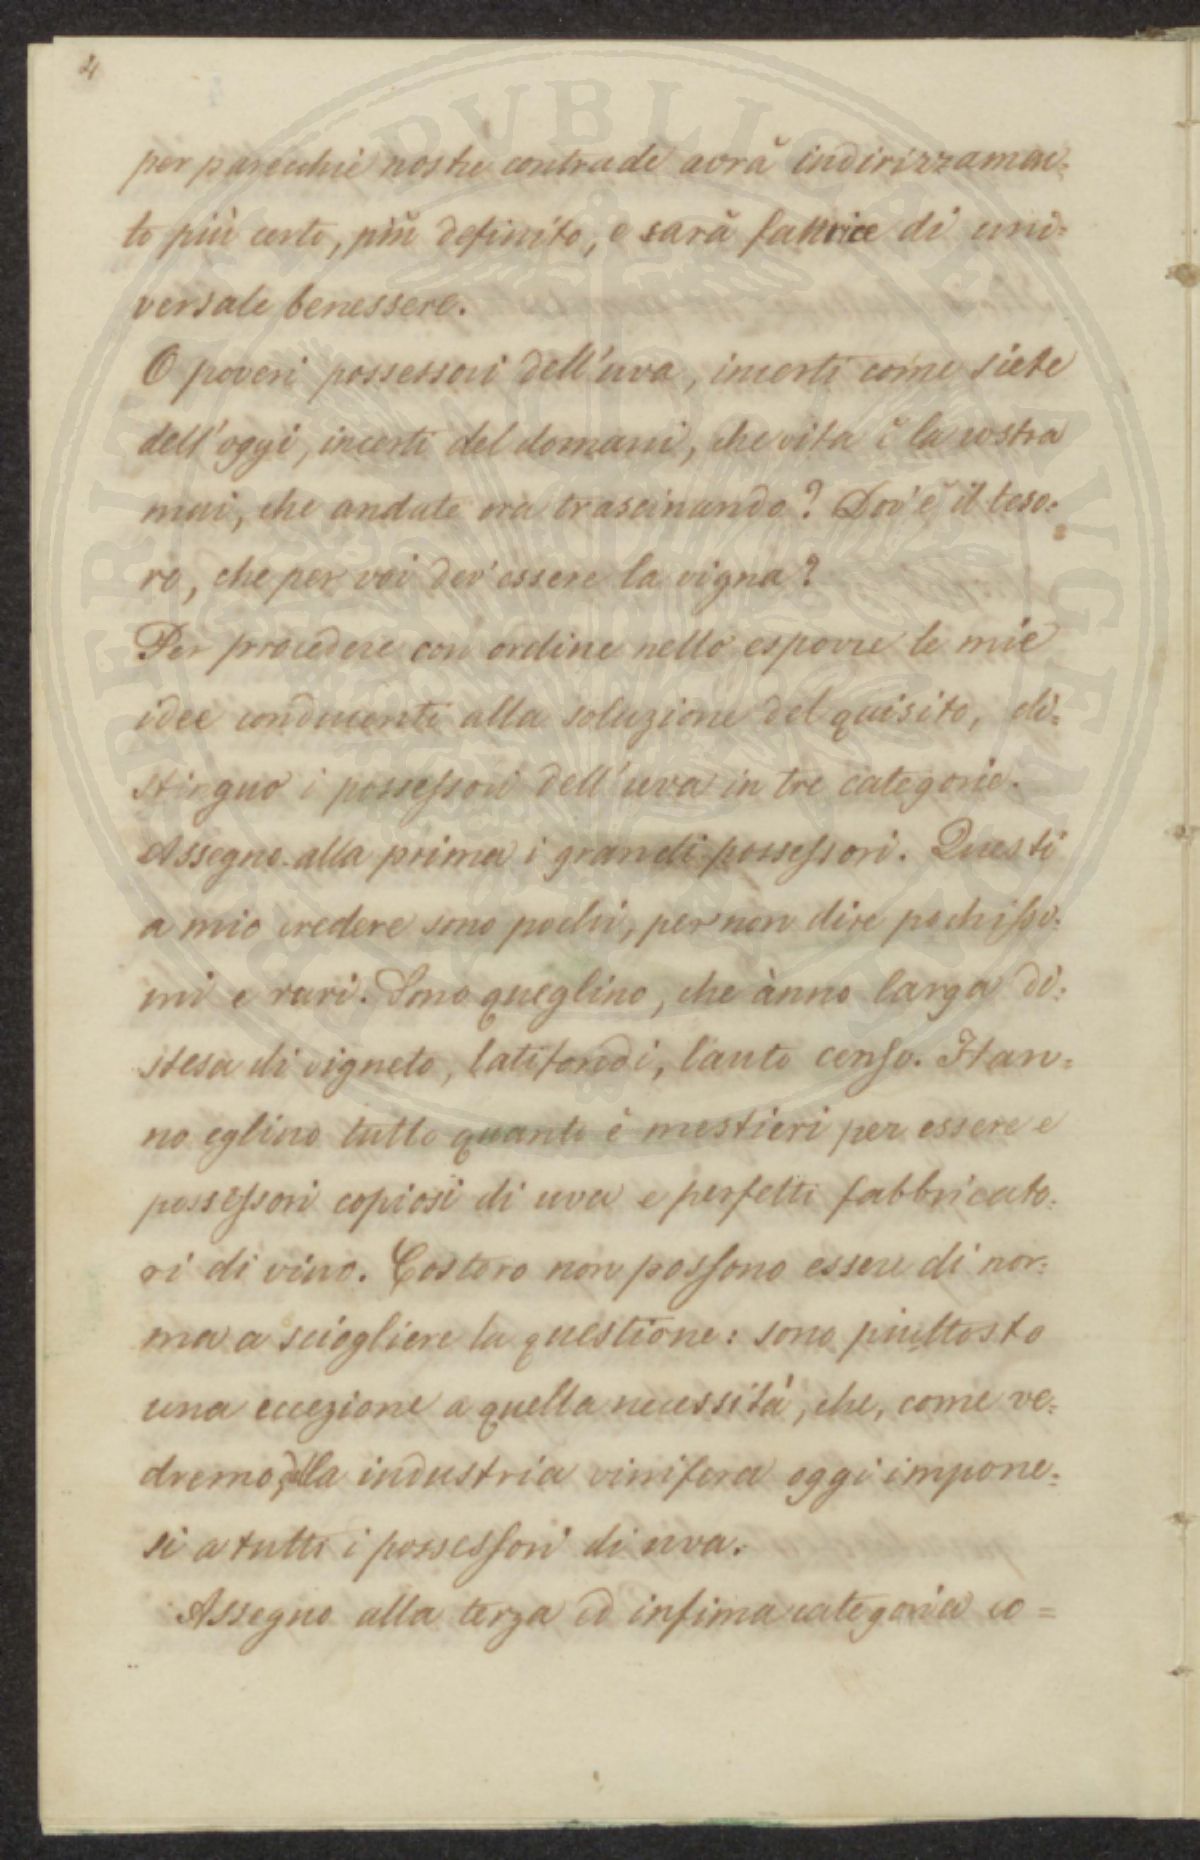 4
per parecchie nostre contrade avrà indirizzamen=
to più certo, più definito, e sarà fattrice di uni=
versale benessere.
O poveri possessori dell'uva, incerti come siete
dell'oggi, incerti del domani, che vita è la vostra
mai, che andate ora trascinando? Dov'è il teso=
ro, che per voi dev'essere la vigna?
Per procedere con ordine nello esporre le mie
idee conducenti alla soluzione del quisito, di=
stinguo i possessori dell'uva in tre categorie.
Assegno alla prima i grandi possessori. Questi
a mio credere sono pochi, per non dire pochissi=
mi e rari. Sono queglino, che ànno larga di=
stesa di vigneto, latifondi, lauto censo. Han=
no eglino tutto quanto è mestieri per essere e
possessori copiosi di uva e perfetti fabbricato=
ri di vino. Costoro non possono essere di nor=
ma a sciogliere la questione: sono piuttosto
una eccezione a quella necessità, che, come ve=
dremo, dalla industria vinifera oggi impone=
si a tutti i possessori di uva.
Assegno alla terza ed infima categoria co=
PUBLICAE